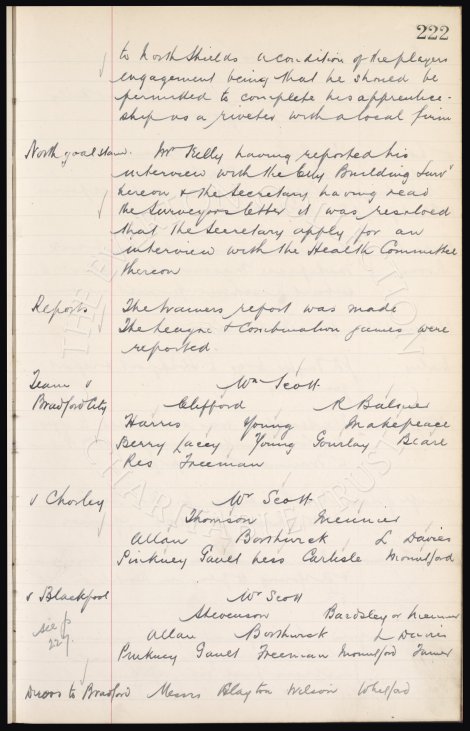 222
to North Shields a condition of the players
engagement being that he should be
permitted to complete his apprentice-
ship as a riveter with a local firm
North goal stand. Mr Kelly having reported his
interview with the City Building Surv
hereon & the Secretary having read
the Surveyors letter it was resolved
that the Secretary apply for an
interview with the Health Committee
thereon
Reports The trainers report was made
The League & Combination games were
reported.
Team v Wm Scott
Bradford City Clifford R Balmer
Harris Young Makepeace
Berry Lacey Young Gourlay Beare
Res Freeman
v Chorley Wr Scott
Thomson Meunier
Allan Borthwick L Davies
Pinkney Gault Less Carlisle Mountford
v Blackpool Wr Scott
Stevenson Bardsley or Meunier
see p Allan Borthwick L Davies
227. Pinkney Gault Freeman Mountford Turner
Direcs to Bradford Messrs Clayton Wilson Whitford
THE EVERTON COLLECTION
CHARITABLE TRUST